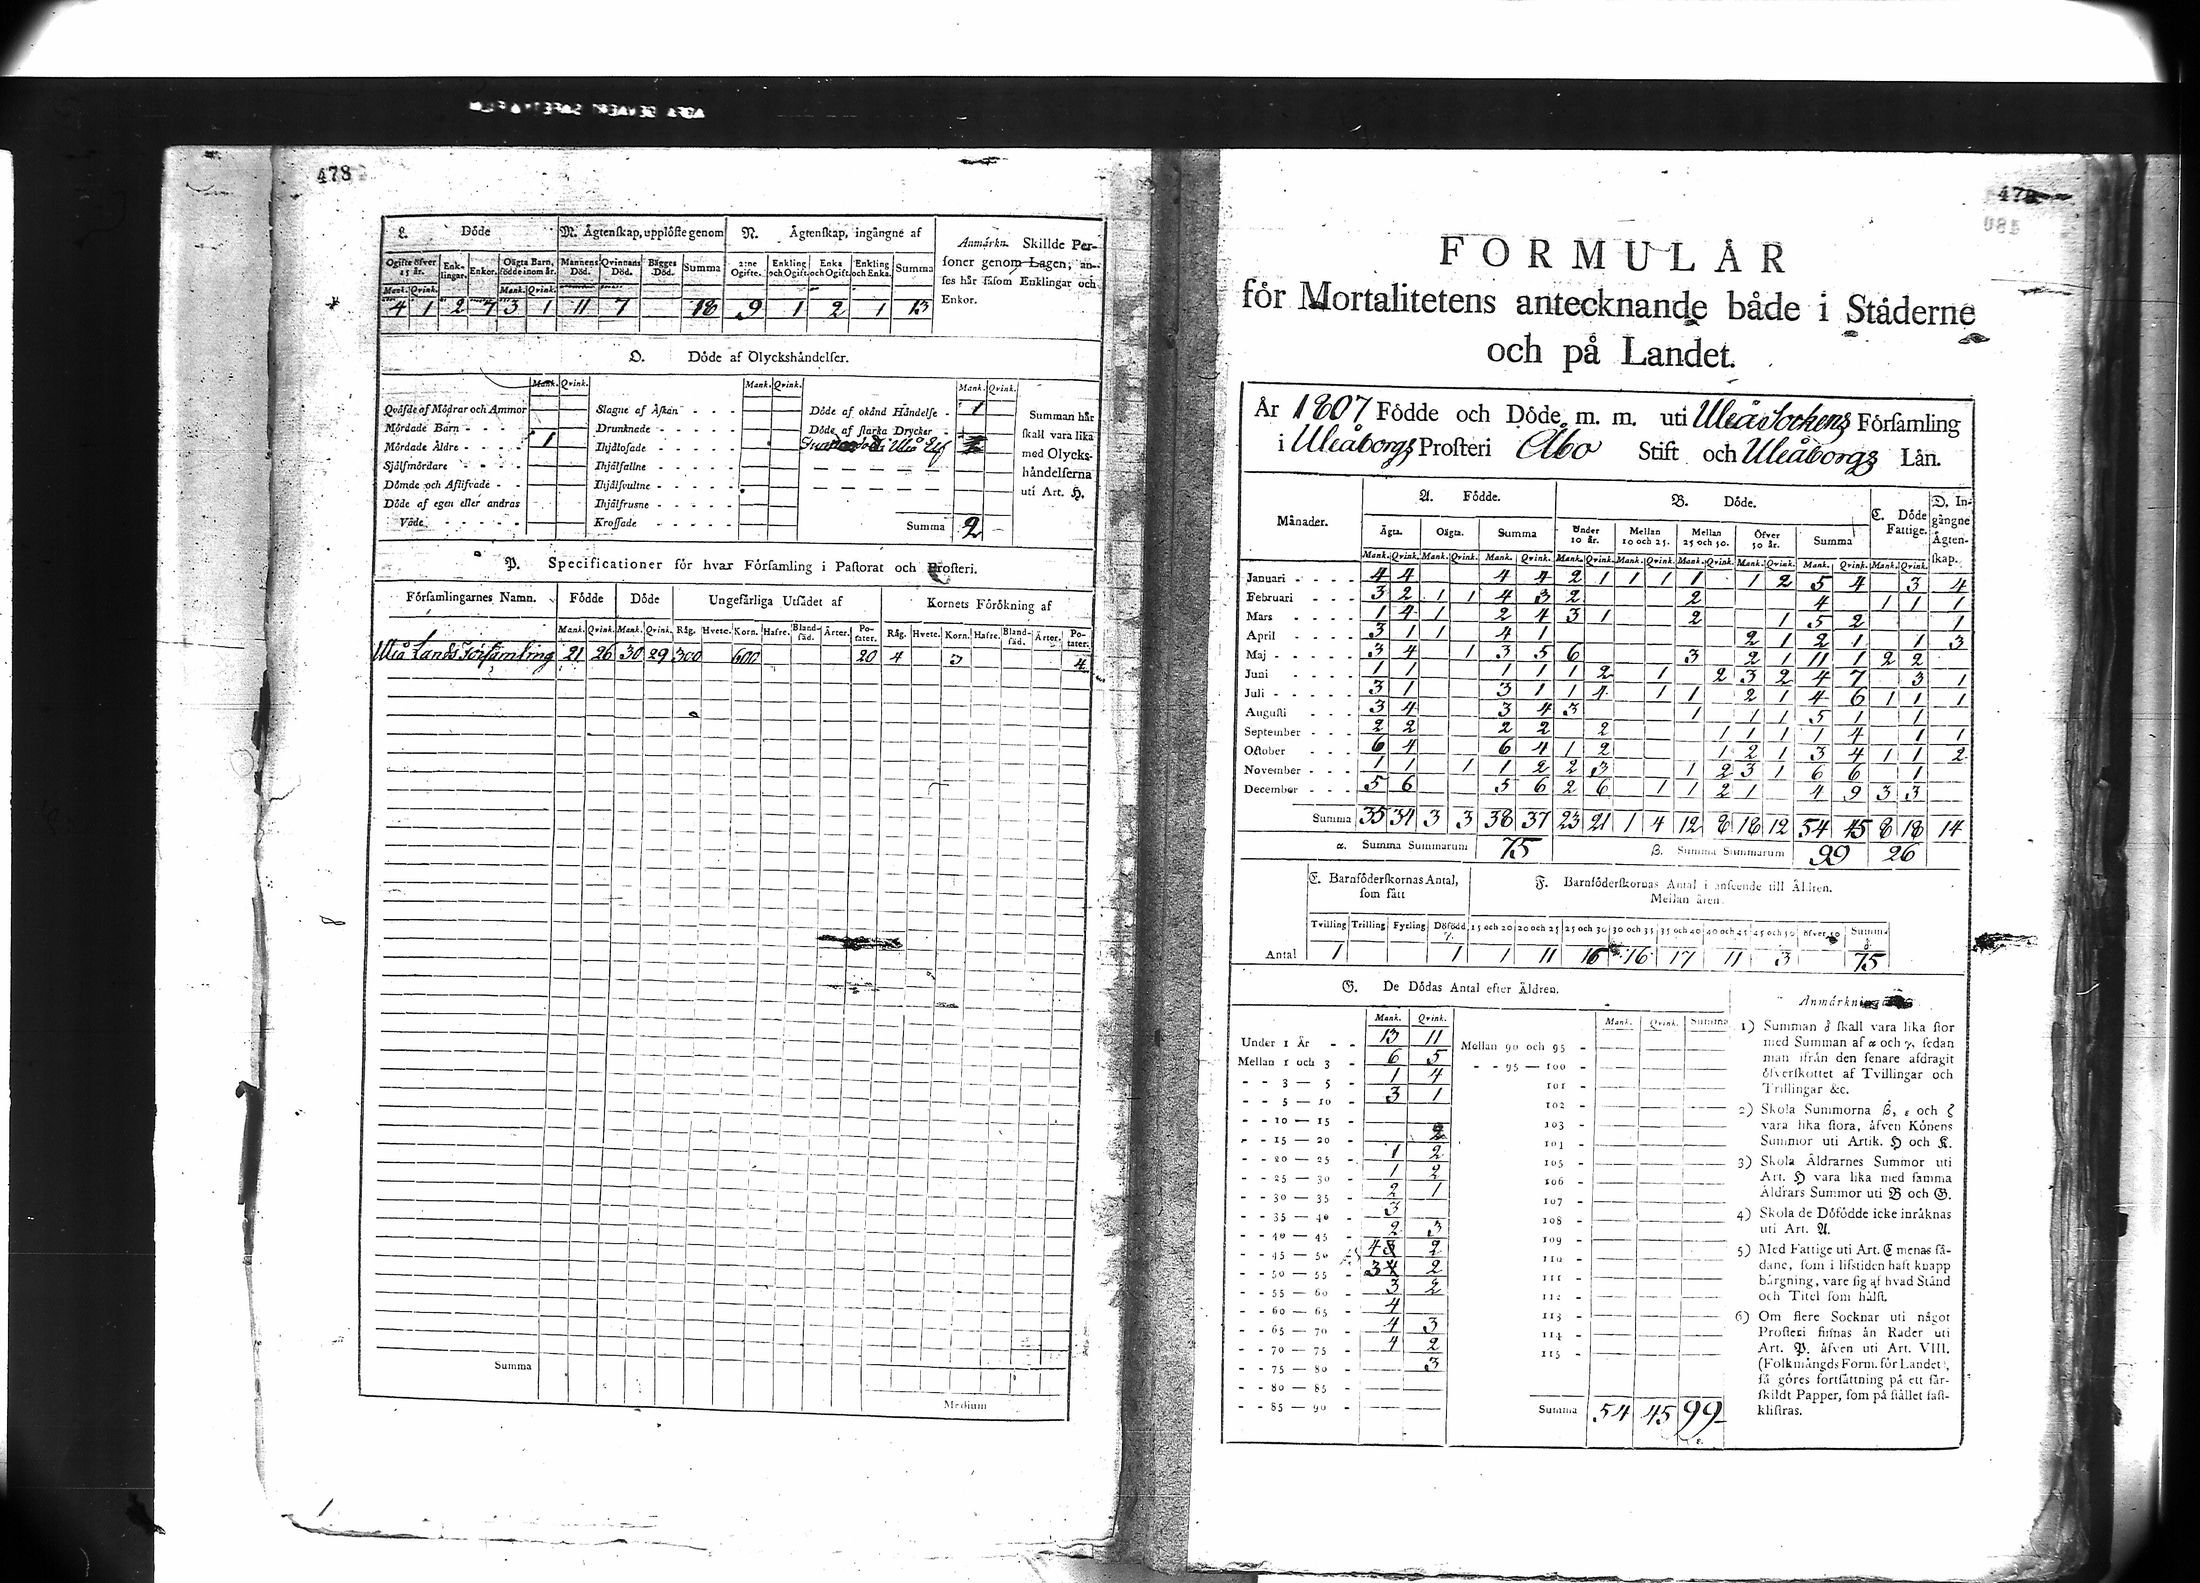 478
L. Döde
M. Ägtenſkap, upplöſte genom
N. Ägtenſkap, ingångne af
Anmärkn. Skillde Per-
ſoner genom Lagen, an-
ſes här ſåſom Enklingar och
Enkor.
Ogifte öfver 15 år. Enk-lingar. Enkor. Oägta Barn, födde inom år. Mannens Död. Qvinnans Död. Bägges Död. Summa 2:ne Ogifte. Enkling och Ogift. Enka och Ogift. Enkling och Enka. Summa
Mank. Qvink. Mank. Qvink.
4 1 2 7 3 1 11 7 18 9 1 2 1 13
O. Döde af Olyckshändelſer.
Mank. Qvink. Mank. Qvink. Mank. Qvink.
Qväfde af Mödrar och Ammor Slagne af Åſkan Döde af okänd Händelſe - 1
Mördade Barn Drunknade Döde af ſtarka Drycker
Mördade Äldre 1 Ihjälſofade Uleå Elf
Sjelfmördare Ihjälfallne
Dömde och Aflifvade Ihjälſvultne
Döde af egen eller andras Ihjälfrusne
Våde Kroſſade Summa 2
Summan här
ſkall vara lika
med Olycks-
händelſerna
uti Art. H.
P. Specificationer för hvar Förſamling i Paſtorat och Proſteri.
Förſamlingarnes Namn. Födde Döde Ungefärliga Utſädet af Kornets Förökning af
Mank. Qvink. Mank. Qvink. Råg. Hvete. Korn. Hafre. Bland-ſäd. Ärter. Po-tater. Råg. Hvete. Korn. Hafre. Bland-ſäd. Ärter. Po-tater.
Uleå Lands Förſamling 21 26 30 29 300 600 20 4 3 4
Summa
Medium
479
FORMULÄR
för Mortalitetens antecknande både i Städerne
och på Landet.
År 1807 Födde och Döde m. m. uti Uleå Sockens Förſamling
i Uleåborgs Proſteri Åbo Stift och Uleåborgs Län.
Månader. A. Födde. B. Döde. C. Döde Fattige. D. In-gångne Ägten-ſkap.
Ägta. Oägta. Summa Under 10 år. Mellan 10 och 25. Mellan 25 och 50. Öfver 50 år. Summa
Mank. Qvink. Mank. Qvink. Mank. Qvink. Mank. Qvink. Mank. Qvink. Mank. Qvink. Mank. Qvink. Mank. Qvink. Mank. Qvink.
Januari - - - - 4 4 4 4 2 1 1 1 1 1 2 5 4 3 4
Februari - - - 3 2 1 1 4 3 2 2 4 1 1 1
Mars - - - - 1 4 1 2 4 3 1 2 1 5 2 1
April - - - - 3 1 1 4 1 2 1 2 1 1 3
Maj - - - - - 3 4 1 3 5 6 3 2 1 11 1 2 2
Juni - - - 1 1 1 1 1 2 1 2 3 2 4 7 3 1
Juli - - - - - 3 1 3 1 1 4 1 1 2 1 4 6 1 1 1
Auguſti - - - 3 4 3 4 3 1 1 1 5 1 1
September - - - 2 2 2 2 2 1 1 1 1 4 1 1
October - - - 6 4 6 4 1 2 1 2 1 3 4 1 1 2
November - - - 1 1 1 1 2 2 3 1 2 3 1 6 6 1
December - - - 5 6 5 6 2 6 1 1 2 1 4 9 3 3
Summa 35 34 3 3 38 37 23 21 1 4 12 8 18 12 54 45 8 18 14
α. Summa Summarum 75 β. Summa Summarum 99 26
E. Barnföderſkornas Antal,
ſom fått
F. Barnföderſkornas Antal i anſeende till Åldren.
Mellan åren.
Tvilling Trilling Fyrling Dödfödd γ. 15 och 20 20 och 25 25 och 30 30 och 35 35 och 40 40 och 45 45 och 50 öfver 50 Summa δ.
Antal 1 1 1 11 16 16 17 11 3 75
G. De Dödas Antal efter Åldren.
Mank. Qvink. Mank. Qvink. Summa
Under 1 År - - 13 11 Mellan 90 och 95 -
Mellan 1 och 3 - 6 5 - - 95 — 100 -
- - 3 — 5 - 1 4 101 -
- - 5 — 10 - 3 1 102 -
- - 10 — 15 - 103 -
- - 15 — 20 - 2 104 -
- - 20 — 25 - 1 2 105 -
- - 25 — 30 - 1 2 106 -
- - 30 — 35 - 2 1 107 -
- - 35 — 40 - 3 108 -
- - 40 — 45 - 2 3 109 -
- - 45 — 50 - 4 2 110 -
- - 50 — 55 - 3 2 111 -
- - 55 — 60 - 3 2 112 -
- - 60 — 65 - 4 113 -
- - 65 — 70 - 4 3 114 -
- - 70 — 75 - 4 2 115 -
- - 75 — 80 - 3
- - 80 — 85 -
- - 85 — 90 - Summa 54 45 99
ε.
Anmärkningar
1) Summan δ ſkall vara lika ſtor
med Summan af α och γ, ſedan
man ifrån den ſenare afdragit
öfverſkottet af Tvillingar och
Trillingar &c.
2) Skola Summorna β, ε och ζ
vara lika ſtora, äfven Könens
Summor uti Artik. H och K.
3) Skola Åldrarnes Summor uti
Art. H vara lika med ſamma
Åldrars Summor uti B och G.
4) Skola de Döfödde icke inräknas
uti Art. A.
5) Med Fattige uti Art. C menas ſå-
dane, ſom i lifstiden haft knapp
bärgning, vare ſig af hvad Stånd
och Titel ſom hälſt.
6) Om flere Socknar uti något
Proſteri finnas än Rader uti
Art. P. äfven uti Art. VIII.
(Folkmängds Form. för Landet),
få göres fortſättning på ett ſär-
ſkildt Papper, ſom på ſtället faſt-
kliſtras.